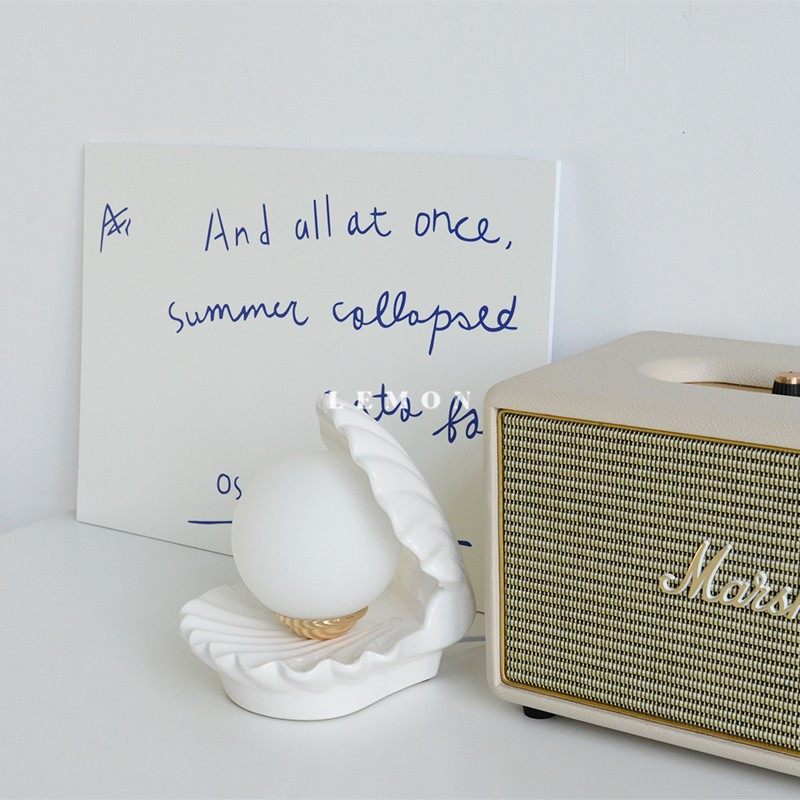 And all at once,
summer collapsed
into fa
Os
LEMON
Marsh